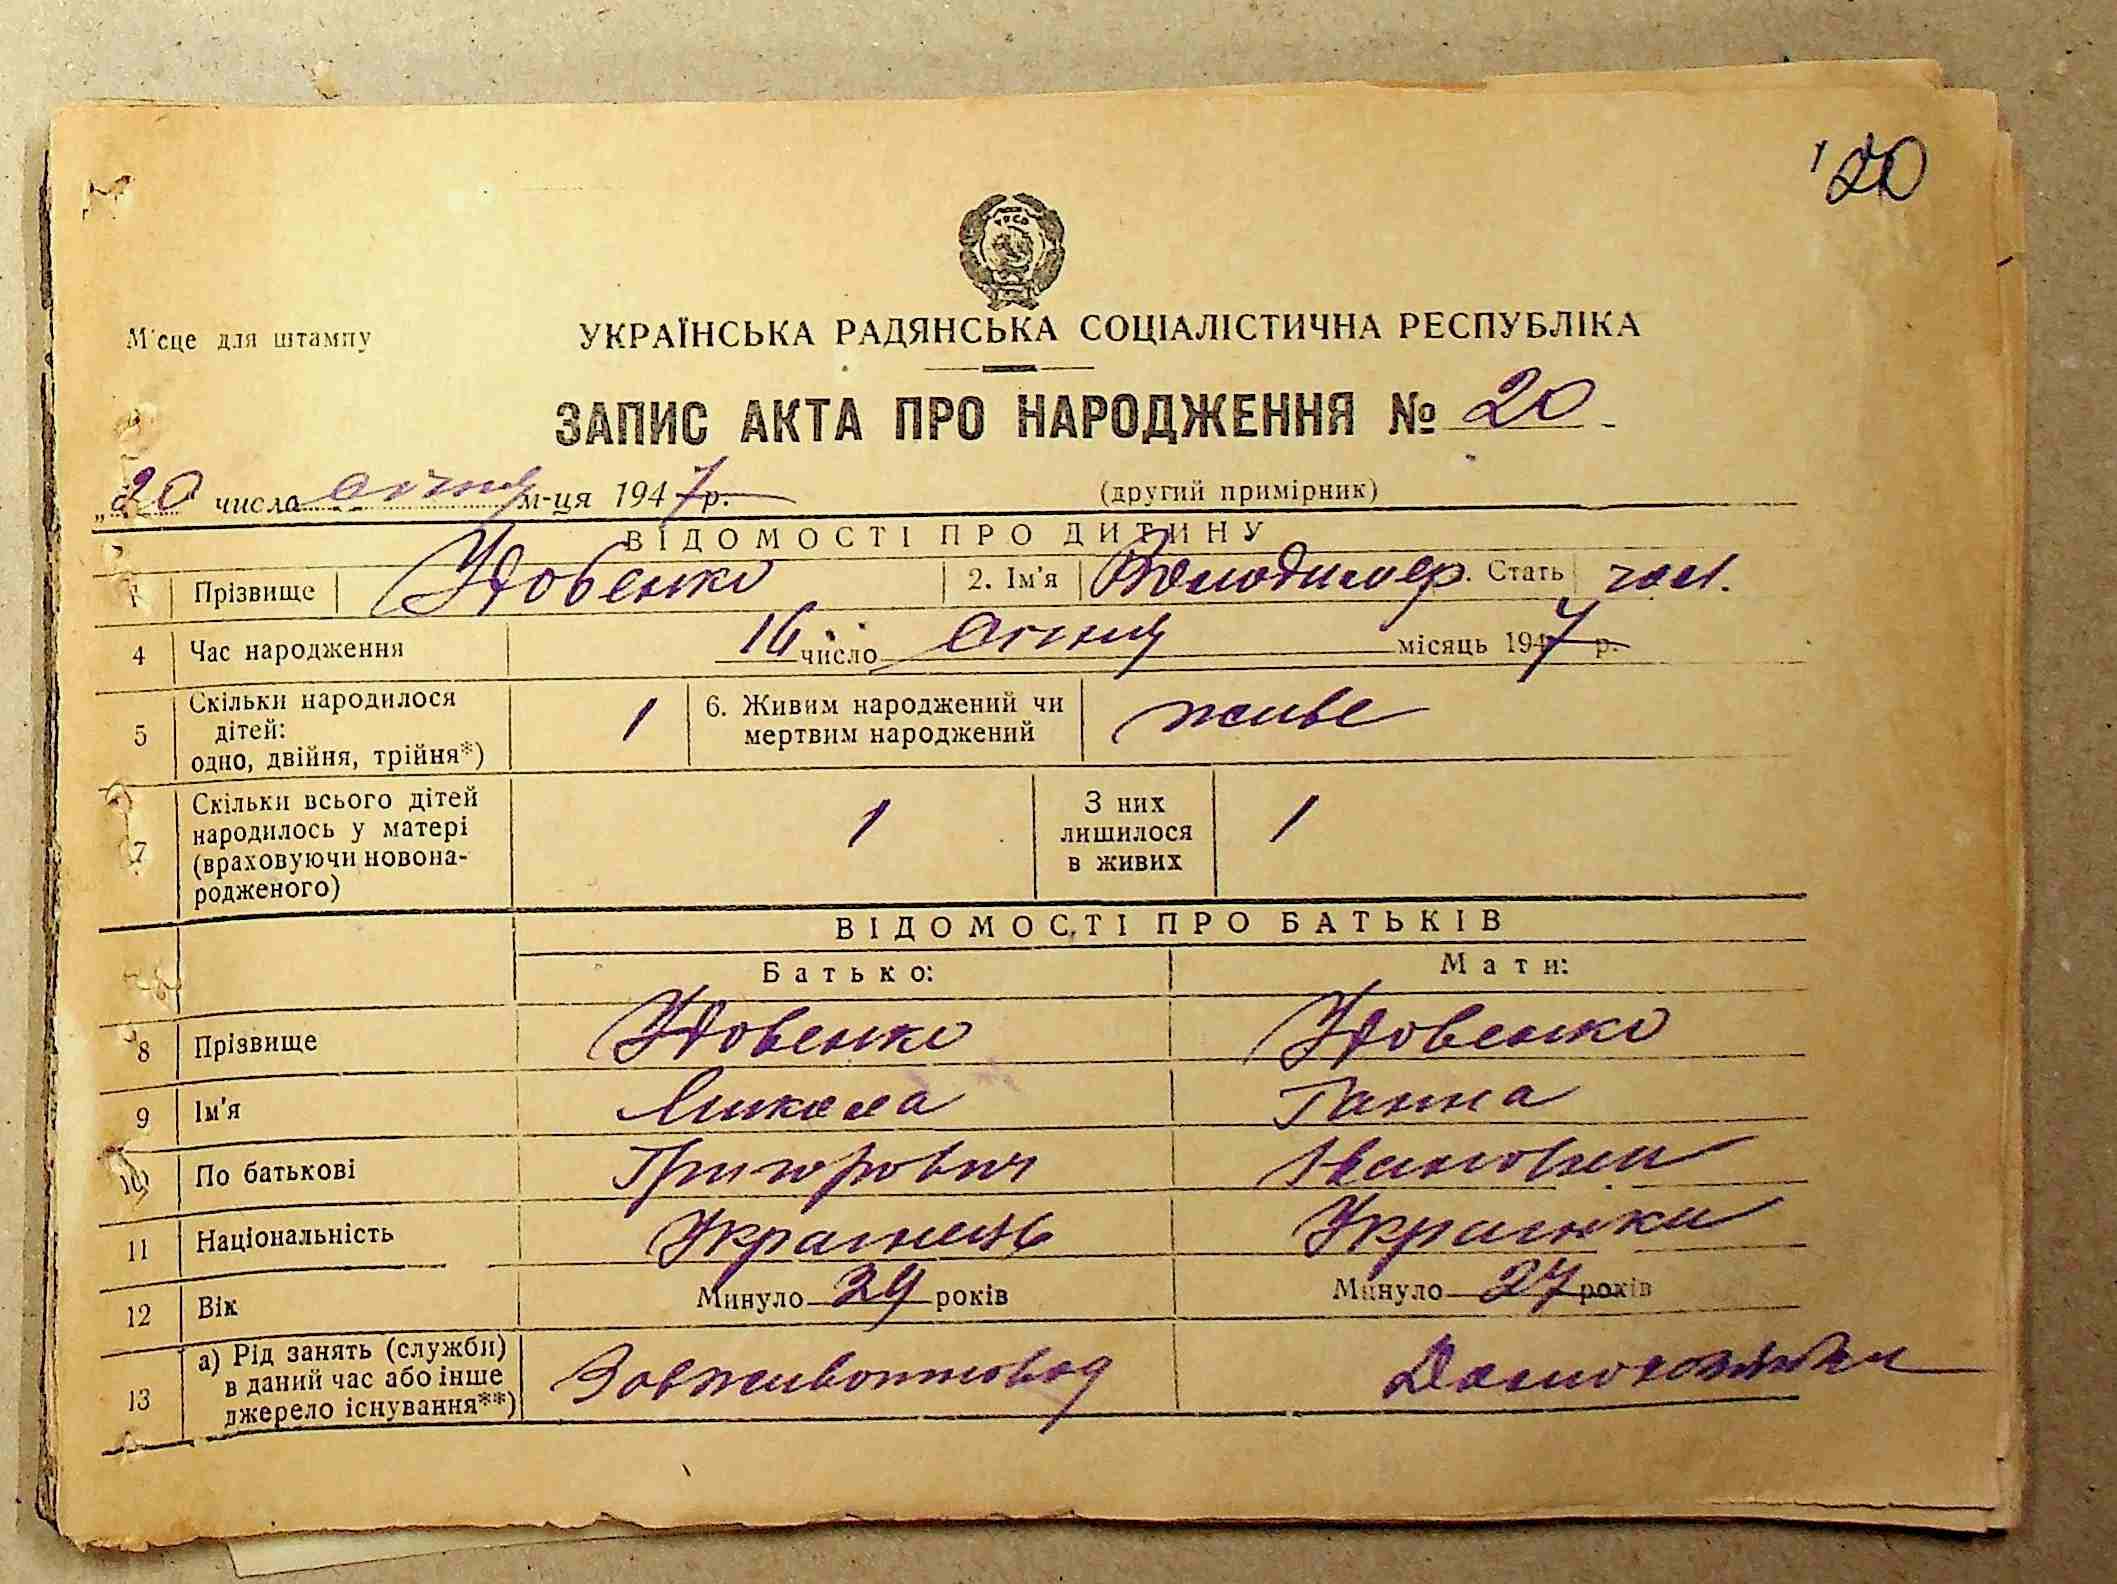 '20
Місце для штампу
УКРАЇНСЬКА РАДЯНСЬКА СОЦІАЛІСТИЧНА РЕСПУБЛІКА
ЗАПИС АКТА ПРО НАРОДЖЕННЯ № 20
„20 числа січня м-ця 1947 р.
(другий примірник)
ВІДОМОСТІ ПРО ДИТИНУ
1 Прізвище Удовенко 2. Ім'я Володимир. Стать чол.
4 Час народження 16 число січня місяць 1947 р.
5 Скільки народилося
дітей:
одно, двійня, трійня*)
1
6. Живим народжений чи
мертвим народжений
живе
7 Скільки всього дітей
народилось у матері
(враховуючи новона-
родженого)
1
З них
лишилося
в живих
1
ВІДОМОСТІ ПРО БАТЬКІВ
Батько: Мати:
8 Прізвище Удовенко Удовенко
9 Ім'я Микола Ганна
10 По батькові Григорович Івановна
11 Національність Українець Українка
12 Вік Минуло 29 років Минуло 27 років
13 а) Рід занять (служби)
в даний час або інше
джерело існування**)
Домохозяйка